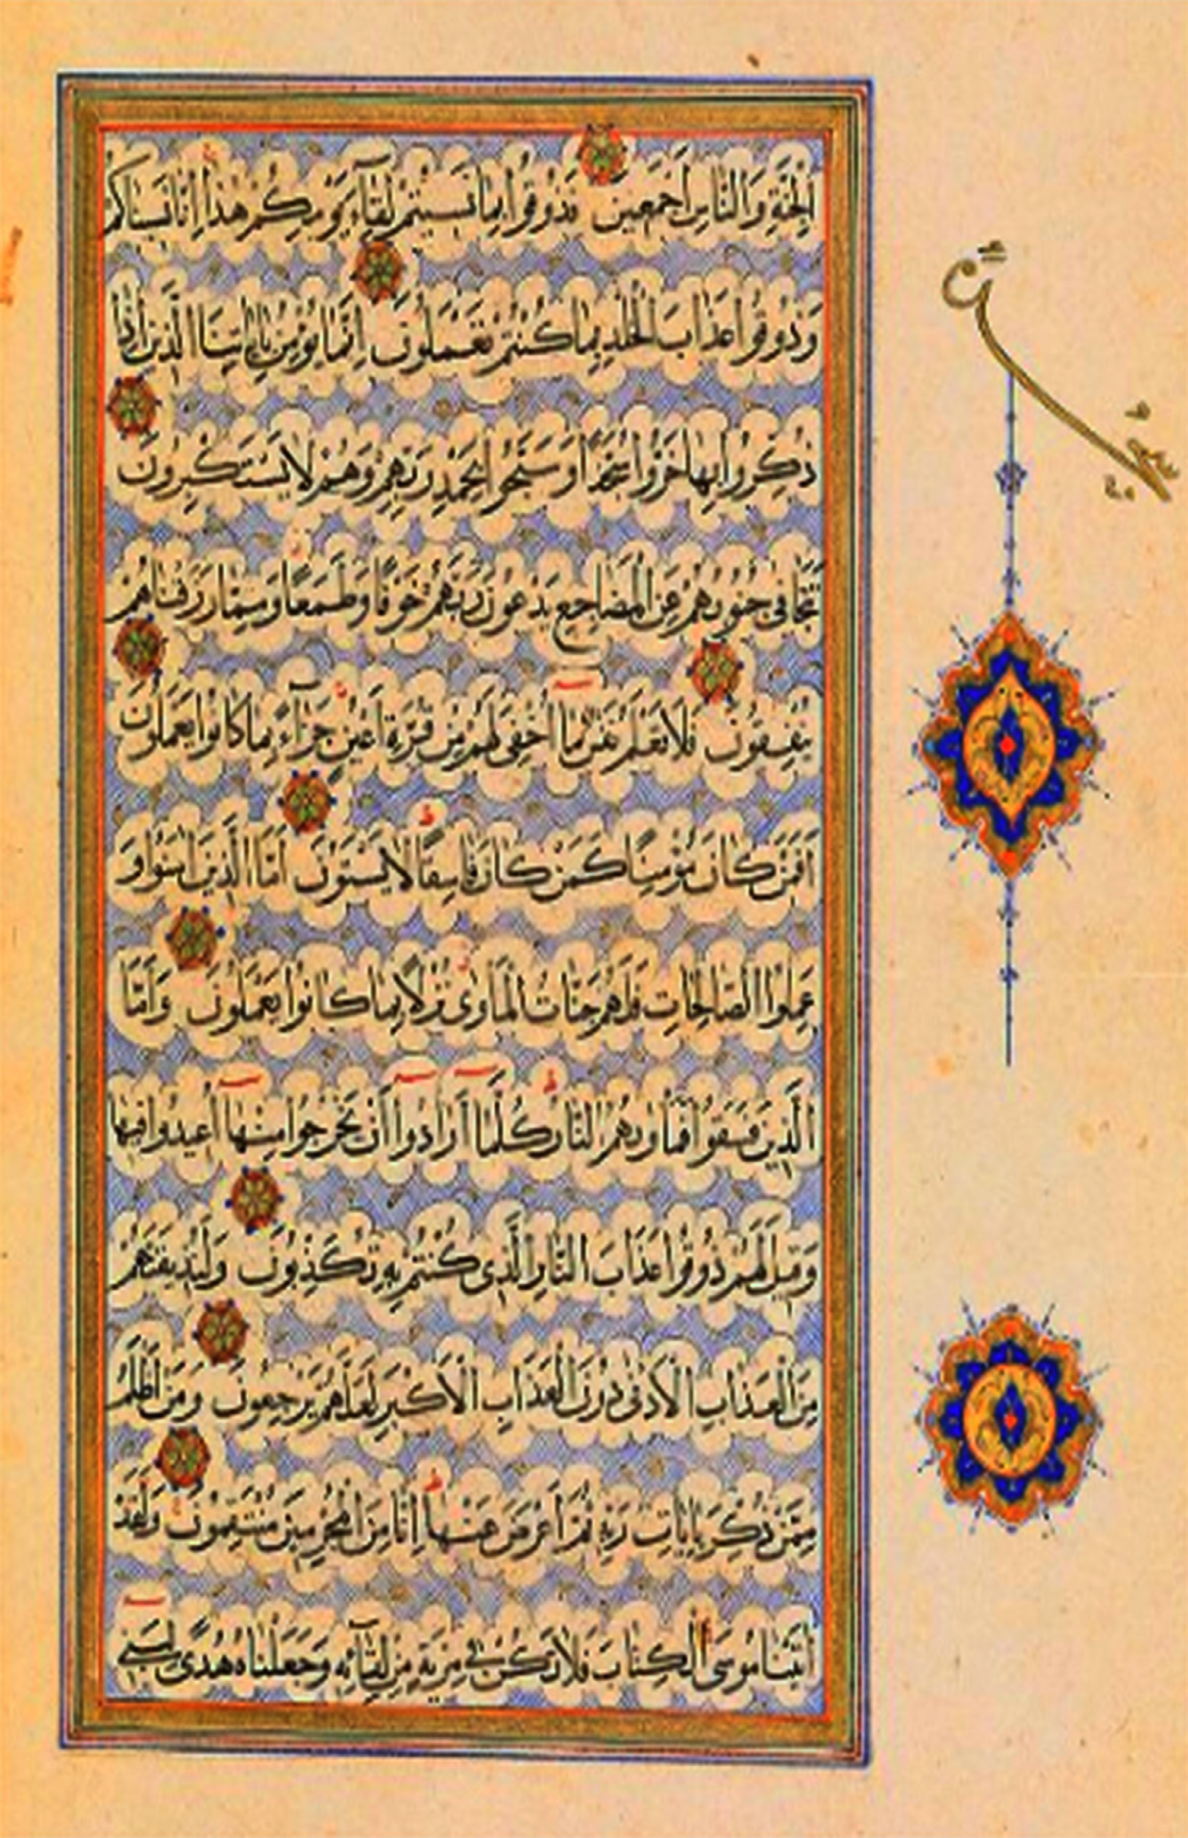 الْجِنَّةِ وَالنَّاسِ أَجْمَعِينَ فَذُوقُوا بِمَا نَسِيتُمْ لِقَاءَ يَوْمِكُمْ هٰذَا إِنَّا نَسِينَاكُمْ
وَذُوقُوا عَذَابَ الْخُلْدِ بِمَا كُنْتُمْ تَعْمَلُونَ إِنَّمَا يُؤْمِنُ بِآيَاتِنَا الَّذِينَ إِذَا
ذُكِّرُوا بِهَا خَرُّوا سُجَّدًا وَسَبَّحُوا بِحَمْدِ رَبِّهِمْ وَهُمْ لَا يَسْتَكْبِرُونَ
تَتَجَافَى جُنُوبُهُمْ عَنِ الْمَضَاجِعِ يَدْعُونَ رَبَّهُمْ خَوْفًا وَطَمَعًا وَمِمَّا رَزَقْنَاهُمْ
يُنْفِقُونَ فَلَا تَعْلَمُ نَفْسٌ مَا أُخْفِيَ لَهُمْ مِنْ قُرَّةِ أَعْيُنٍ جَزَاءً بِمَا كَانُوا يَعْمَلُونَ
أَفَمَنْ كَانَ مُؤْمِنًا كَمَنْ كَانَ فَاسِقًا لَا يَسْتَوُونَ أَمَّا الَّذِينَ آمَنُوا وَ
عَمِلُوا الصَّالِحَاتِ فَلَهُمْ جَنَّاتُ الْمَأْوَى نُزُلًا بِمَا كَانُوا يَعْمَلُونَ وَأَمَّا
الَّذِينَ فَسَقُوا فَمَأْوَاهُمُ النَّارُ كُلَّمَا أَرَادُوا أَنْ يَخْرُجُوا مِنْهَا أُعِيدُوا فِيهَا
وَقِيلَ لَهُمْ ذُوقُوا عَذَابَ النَّارِ الَّذِي كُنْتُمْ بِهِ تُكَذِّبُونَ وَلَنُذِيقَنَّهُمْ
مِنَ الْعَذَابِ الْأَدْنَى دُونَ الْعَذَابِ الْأَكْبَرِ لَعَلَّهُمْ يَرْجِعُونَ وَمَنْ أَظْلَمُ
مِمَّنْ ذُكِّرَ بِآيَاتِ رَبِّهِ ثُمَّ أَعْرَضَ عَنْهَا إِنَّا مِنَ الْمُجْرِمِينَ مُنْتَقِمُونَ وَلَقَدْ
آتَيْنَا مُوسَى الْكِتَابَ فَلَا تَكُنْ فِي مِرْيَةٍ مِنْ لِقَائِهِ وَجَعَلْنَاهُ هُدًى لِبَنِي